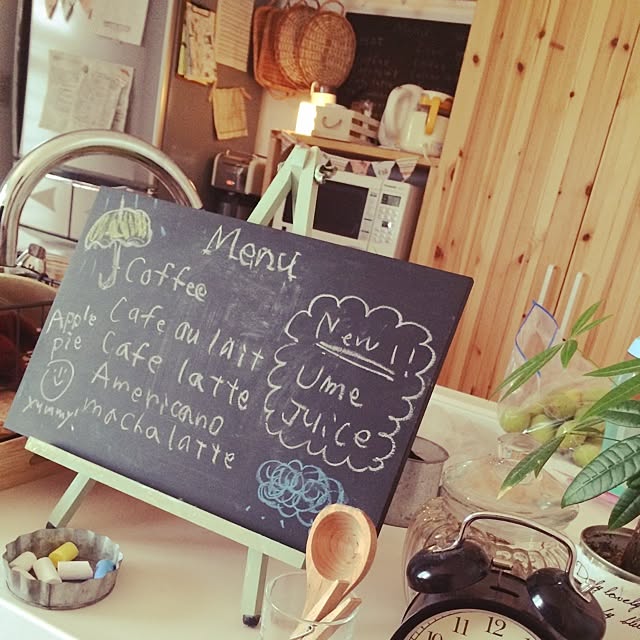 Menu
Coffee
Cafe au lait
Cafe latte
Americano
machalatte
Apple
pie
yummy!
New!!
Ume
Juice
10 11 12 1